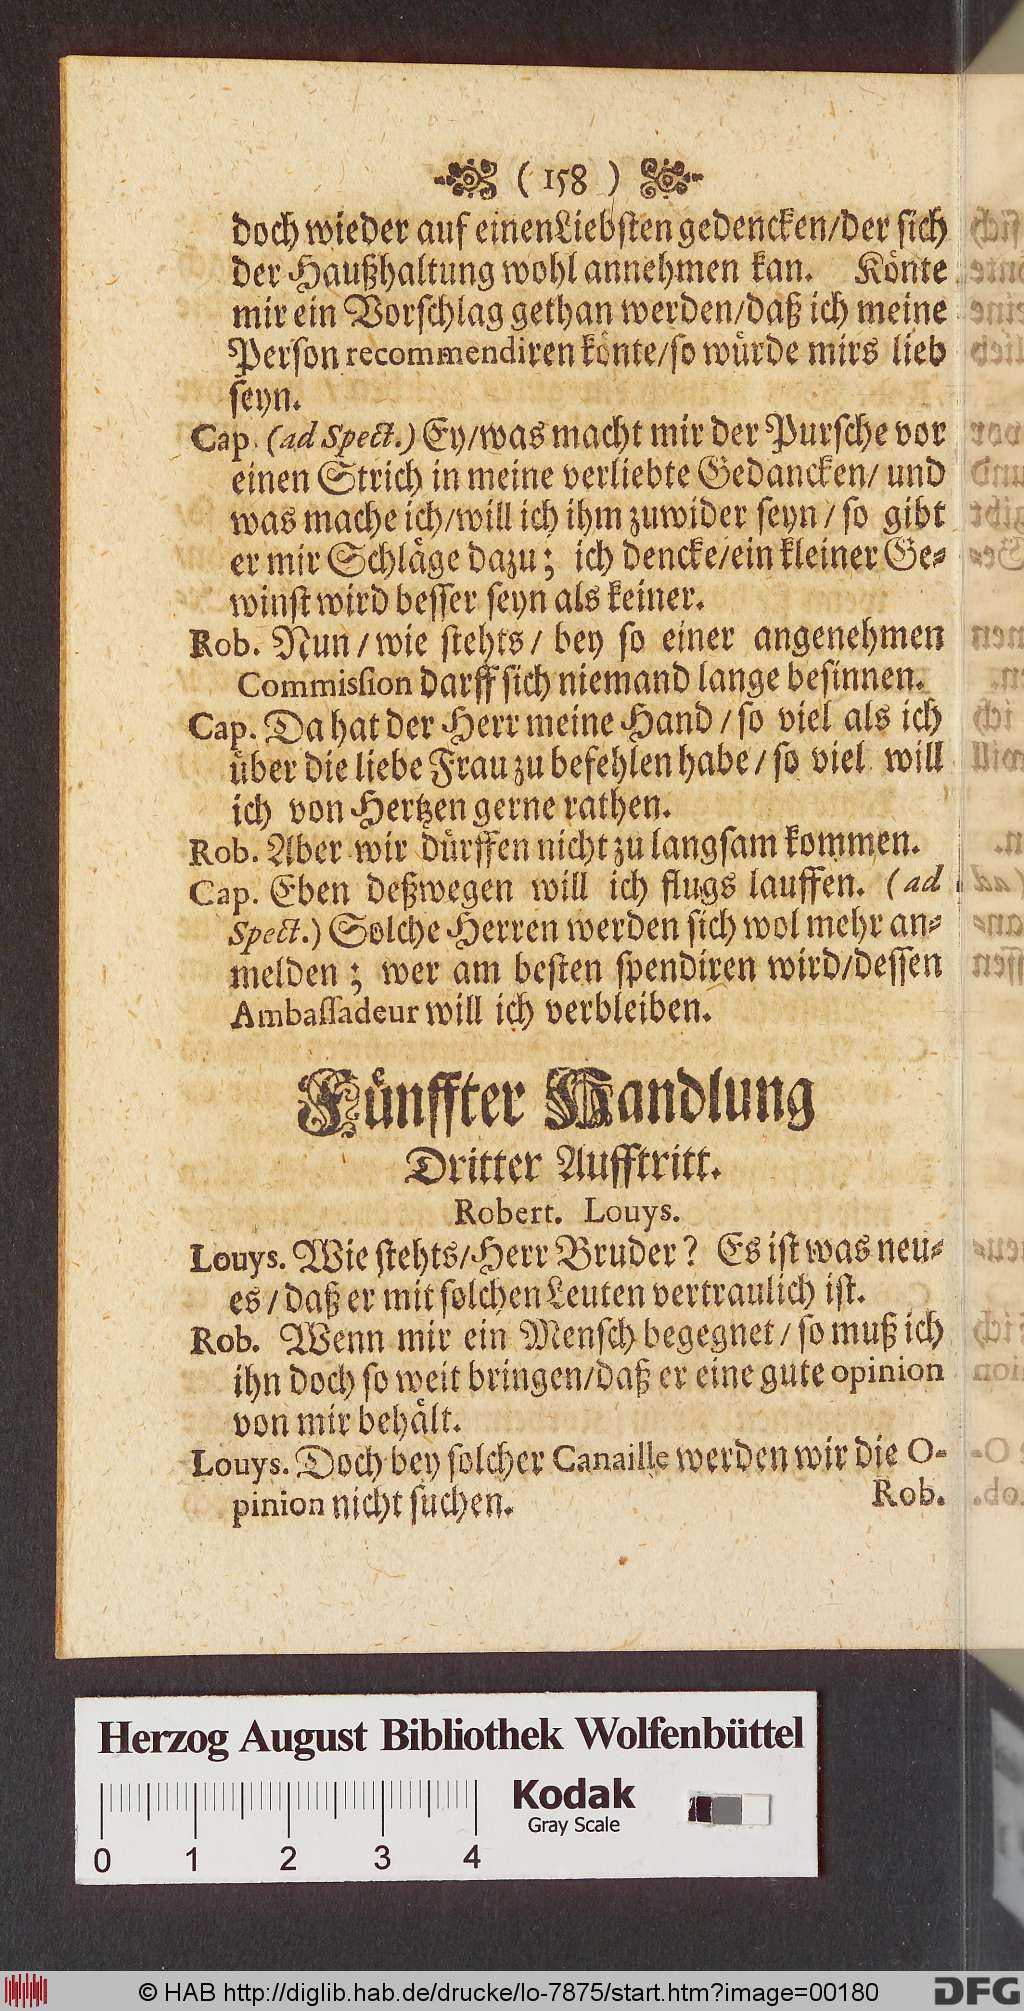 ( 158 )
doch wieder auf einen Liebsten gedencken/der sich
der Haußhaltung wohl annehmen kan. Koͤnte
mir ein Vorschlag gethan werden/daß ich meine
Person recommendiren koͤnte/so wuͤrde mirs lieb
seyn.
Cap. (ad Spect.) Ey/was macht mir der Pursche vor
einen Strich in meine verliebte Gedancken/ und
was mache ich/will ich ihm zuwider seyn / so gibt
er mir Schlaͤge dazu; ich dencke/ein kleiner Ge⸗
winst wird besser seyn als keiner.
Rob. Nun / wie stehts / bey so einer angenehmen
Commission darff sich niemand lange besinnen.
Cap. Da hat der Herr meine Hand / so viel als ich
uͤber die liebe Frau zu befehlen habe / so viel will
ich von Hertzen gerne rathen.
Rob. Aber wir duͤrffen nicht zu langsam kommen.
Cap. Eben deßwegen will ich flugs lauffen. (ad
Spect.) Solche Herren werden sich wol mehr an⸗
melden; wer am besten spendiren wird/dessen
Ambassadeur will ich verbleiben.
Fuͤnffter Handlung
Dritter Aufftritt.
Robert. Louys.
Louys. Wie stehts/Herr Bruder? Es ist was neu⸗
es / daß er mit solchen Leuten vertraulich ist.
Rob. Wenn mir ein Mensch begegnet / so muß ich
ihn doch so weit bringen/daß er eine gute opinion
von mir behaͤlt.
Louys. Doch bey solcher Canaille werden wir die O-
pinion nicht suchen.
Rob.
Herzog August Bibliothek Wolfenbüttel
Kodak
Gray Scale
0 1 2 3 4
© HAB http://diglib.hab.de/drucke/lo-7875/start.htm?image=00180
DFG